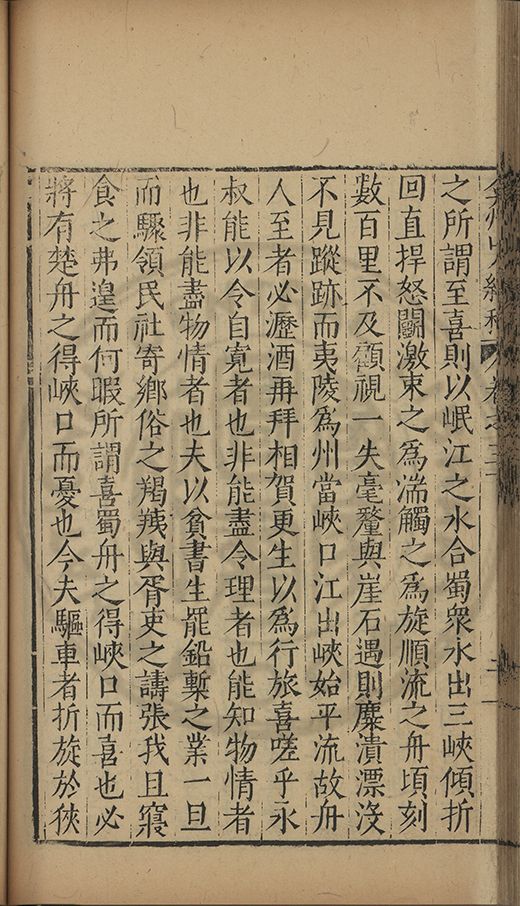 之所謂至喜則以岷江之水合蜀衆水出三峽傾折
回直捍怒鬭激束之爲湍觸之爲旋順流之舟頃刻
數百里不及顧視一失毫釐與崖石遇則糜潰漂沒
不見蹤跡而夷陵爲州當峽口江出峽始平流故舟
人至者必瀝酒再拜相賀更生以爲行旅喜嗟乎永
叔能以令自寬者也非能盡令理者也能知物情者
也非能盡物情者也夫以貧書生罷鉛槧之業一旦
而驟領民社寄鄉俗之羯羠與胥吏之譸張我且寢
食之弗遑而何暇所謂喜蜀舟之得峽口而喜也必
將有楚舟之得峽口而憂也今夫驅車者折旋於狹